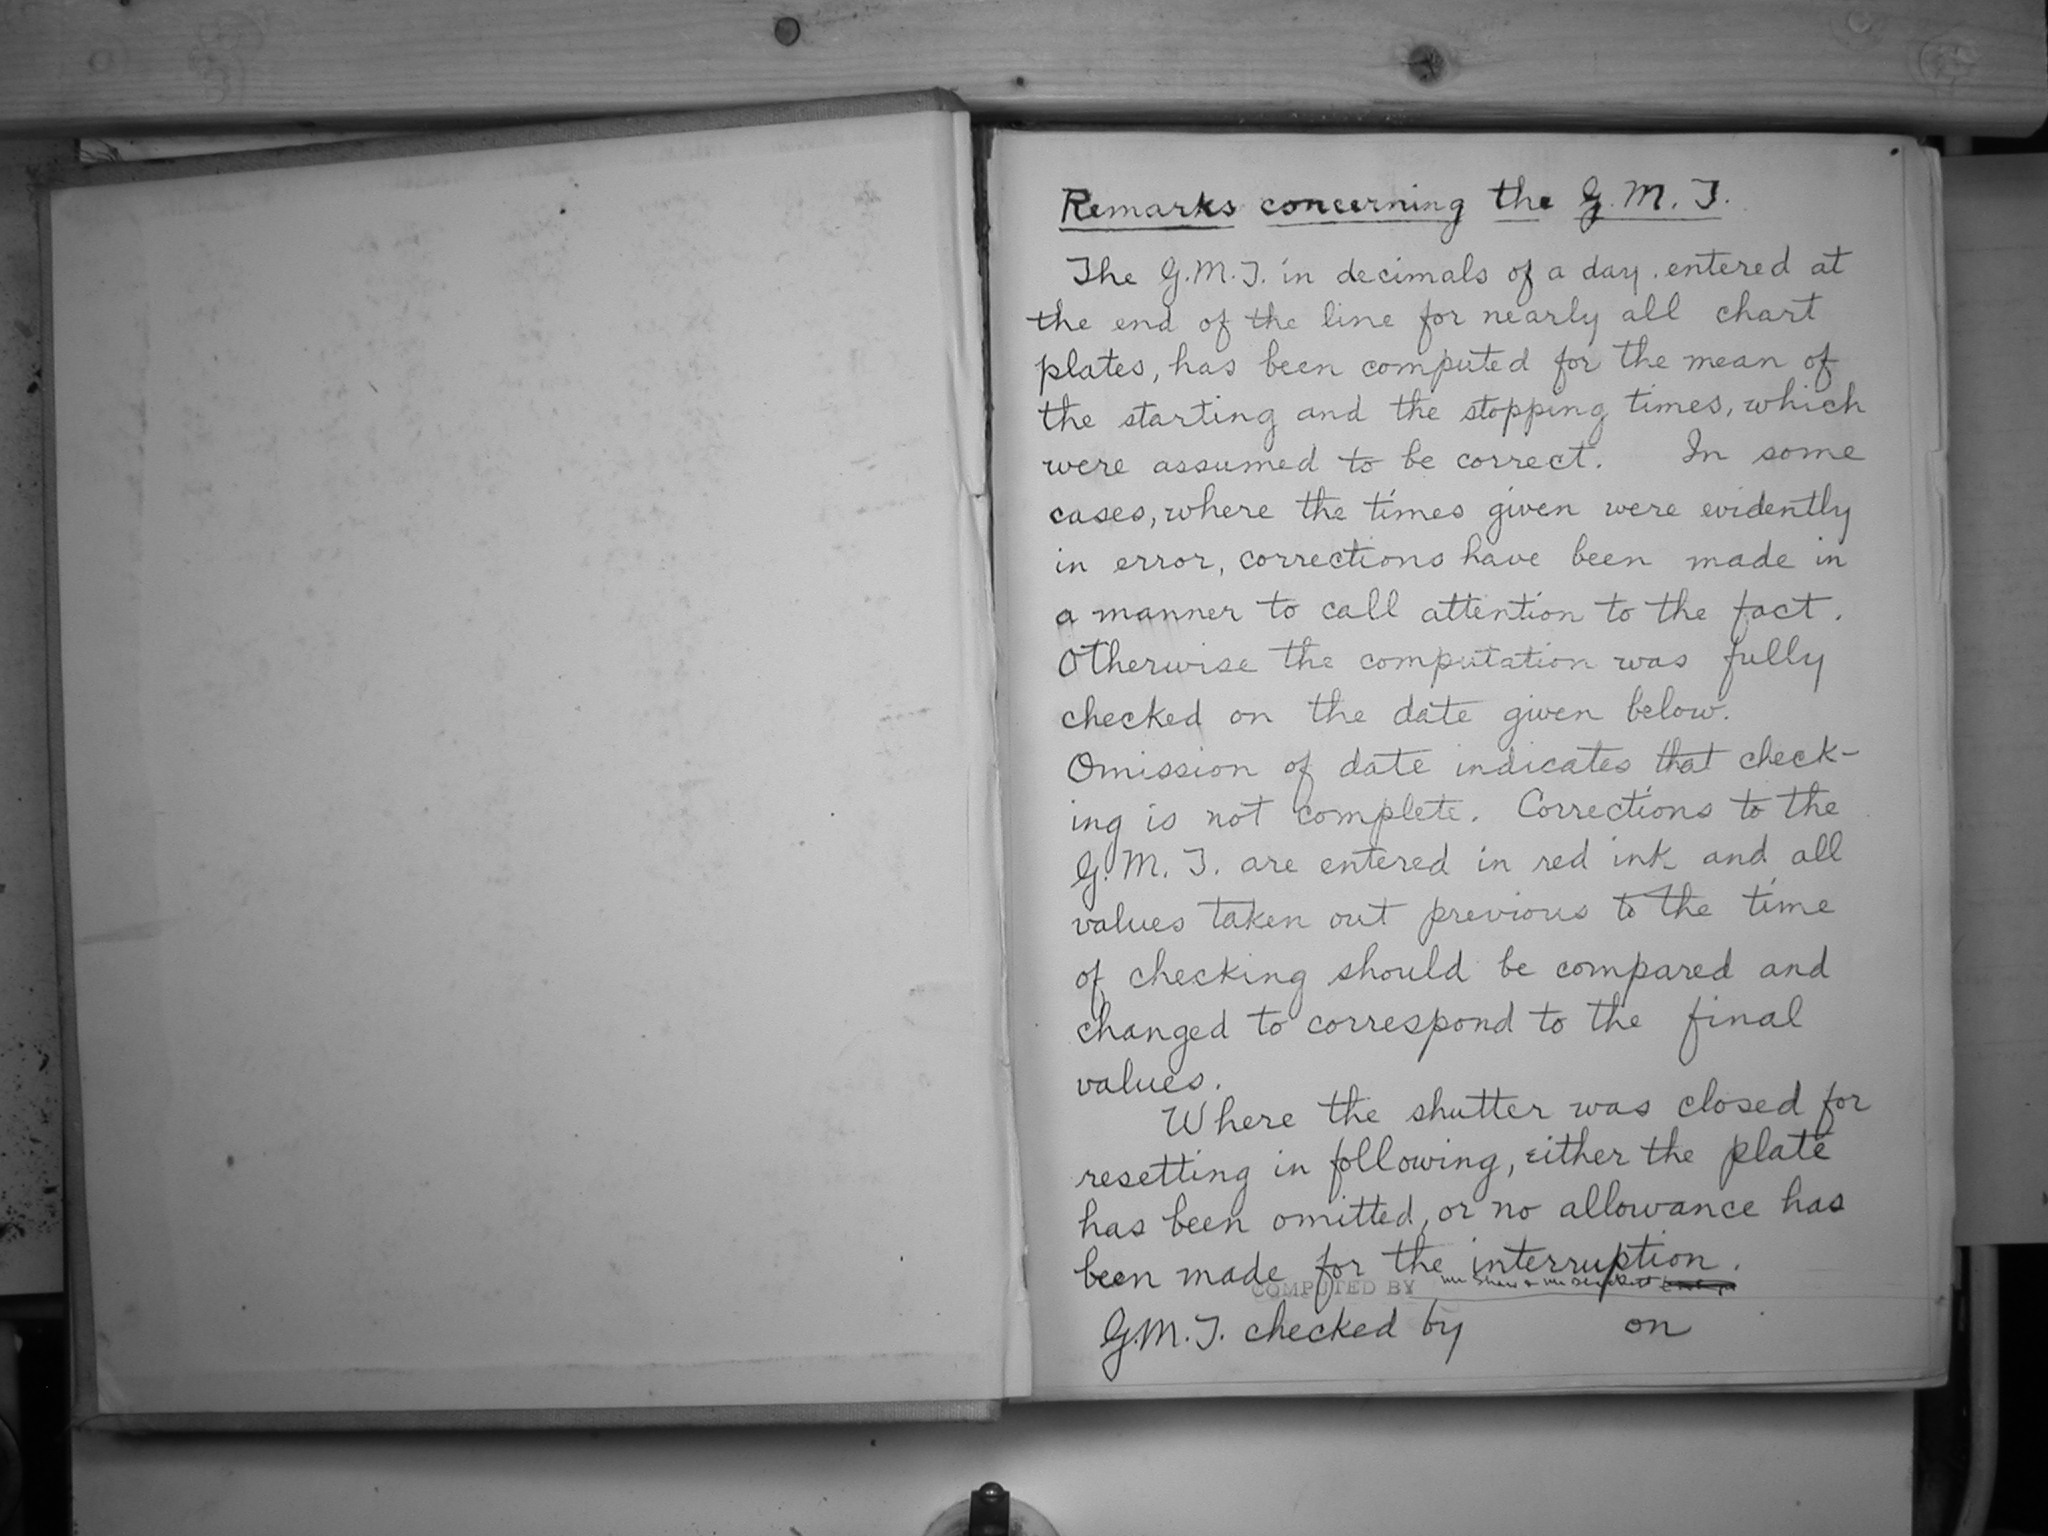 Remarks concerning the G.M.T.
The G.M.T. in decimals of a day, entered at
the end of the line for nearly all chart
plates, has been computed for the mean of
the starting and the stopping times, which
were assumed to be correct. In some
cases, where the times given were evidently
in error, corrections have been made in
a manner to call attention to the fact.
Otherwise the computation was fully
checked on the date given below.
Omission of date indicates that check-
ing is not complete. Corrections to the
G.M.T. are entered in red ink and all
values taken out previous to the time
of checking should be compared and
changed to correspond to the final
values.
Where the shutter was closed for
resetting in following, either the plate
has been omitted, or no allowance has
been made for the interruption.
COMPUTED BY
G.M.T. checked by on